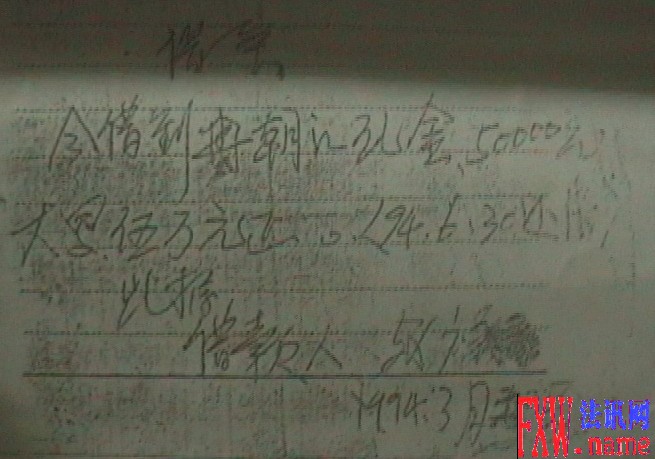 借条
今借到冉朝江现金50000元
大写伍万元正。（94.6.30还清）
此据
借款人
1994.3月
FXW 法讯网
.name